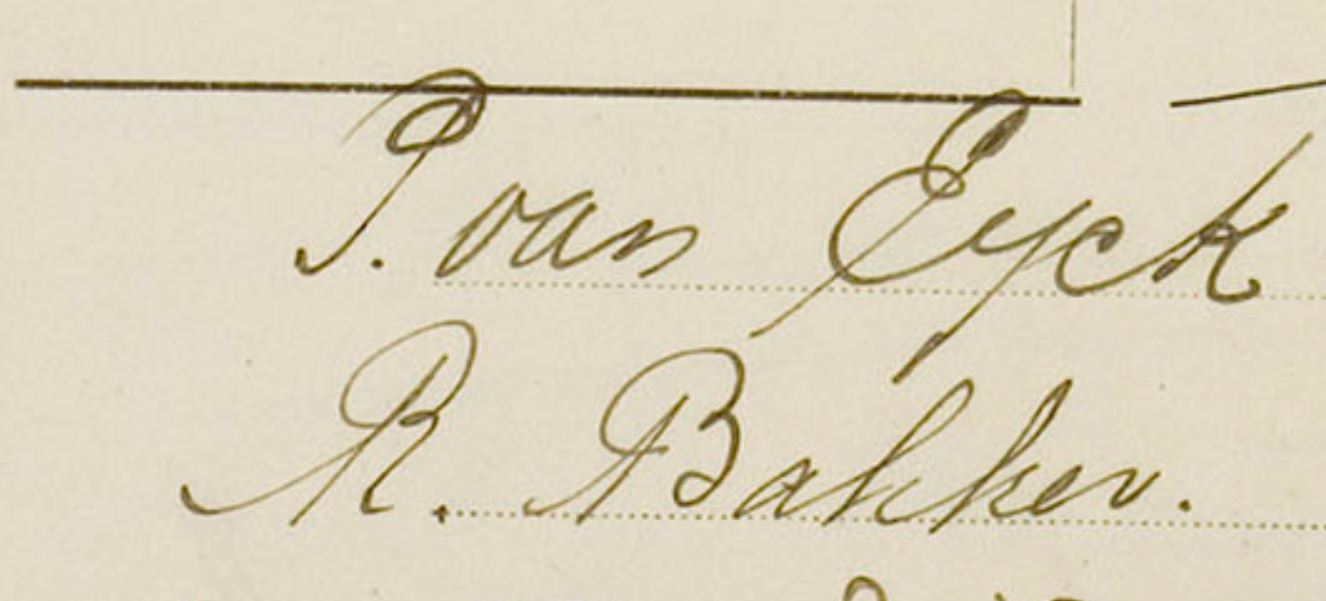 P. van Eyck
R. Bakker.